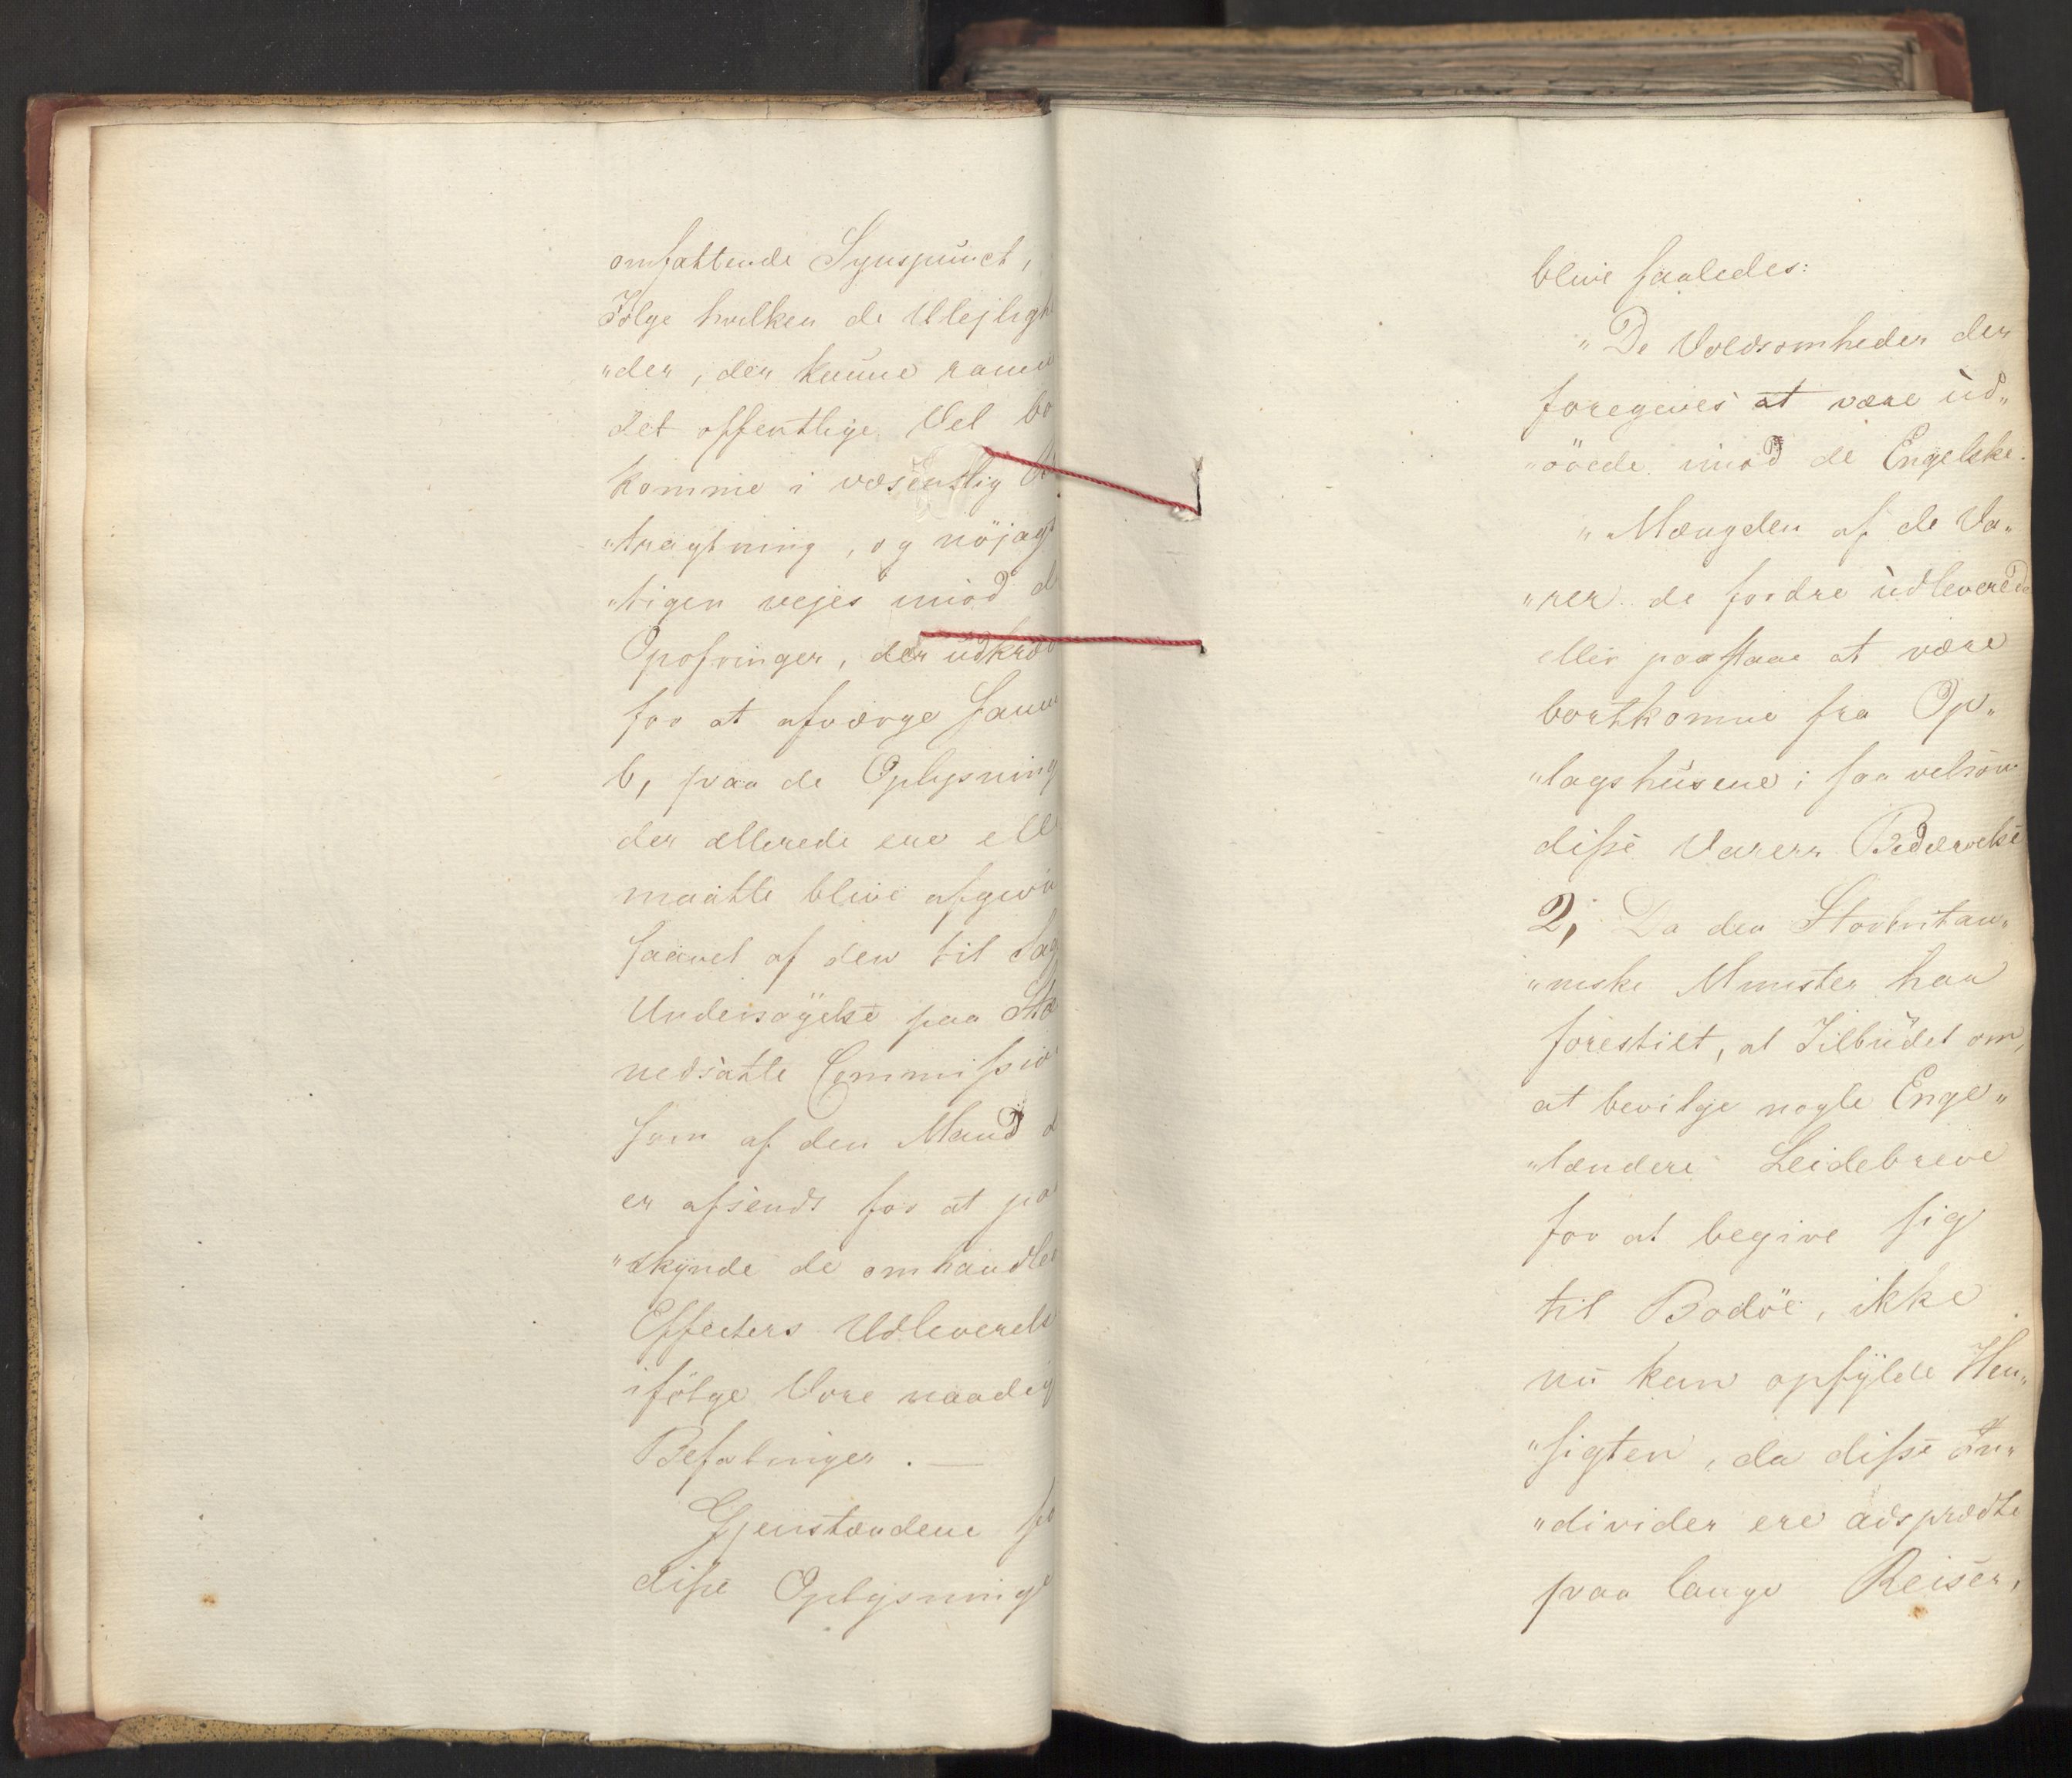 omfattende Synspunct,
Fölge hvilken de Ulejligh
"der, der kunne ramm
det offentlige Vel bö
komme i væsentlig B
"tragtning, og nöjag
"tigen vejes imod d
Opofringer, der udkræv
for at afværge samm
b, paa de Oplysning
der allerede ere ell
maatte blive afgivn
saavel af den til Sag
Undersögelse paa Stæ
nedsatte Commission
som af den Mand d
er afsendt for at paa
"skynde de omhandle
Effecters Udleverels
ifölge Vore naadig
Befalinger. —
Gjenstandene fo
disse Oplysninge
blive saaledes:
"De Voldsomheder der
foregives at være ud"
"övede imod de Engelske.
"Mængden af de Va"
"rer de fordre udleverede
eller paastaae at være
bortkomne fra Op"
"lagshusene; saavelsom
disse Varers Bedærvelse
2, Da den Storbritan"
"niske Minister har
forestilt, at Tilbudet om,
at bevilge nogle Enge"
"lændere Leidebreve
for at begive sig
til Bodöe, ikke
nu kan opfylde Hen"
"sigten, da disse In"
"divider ere adspredte
paa lange Reiser,